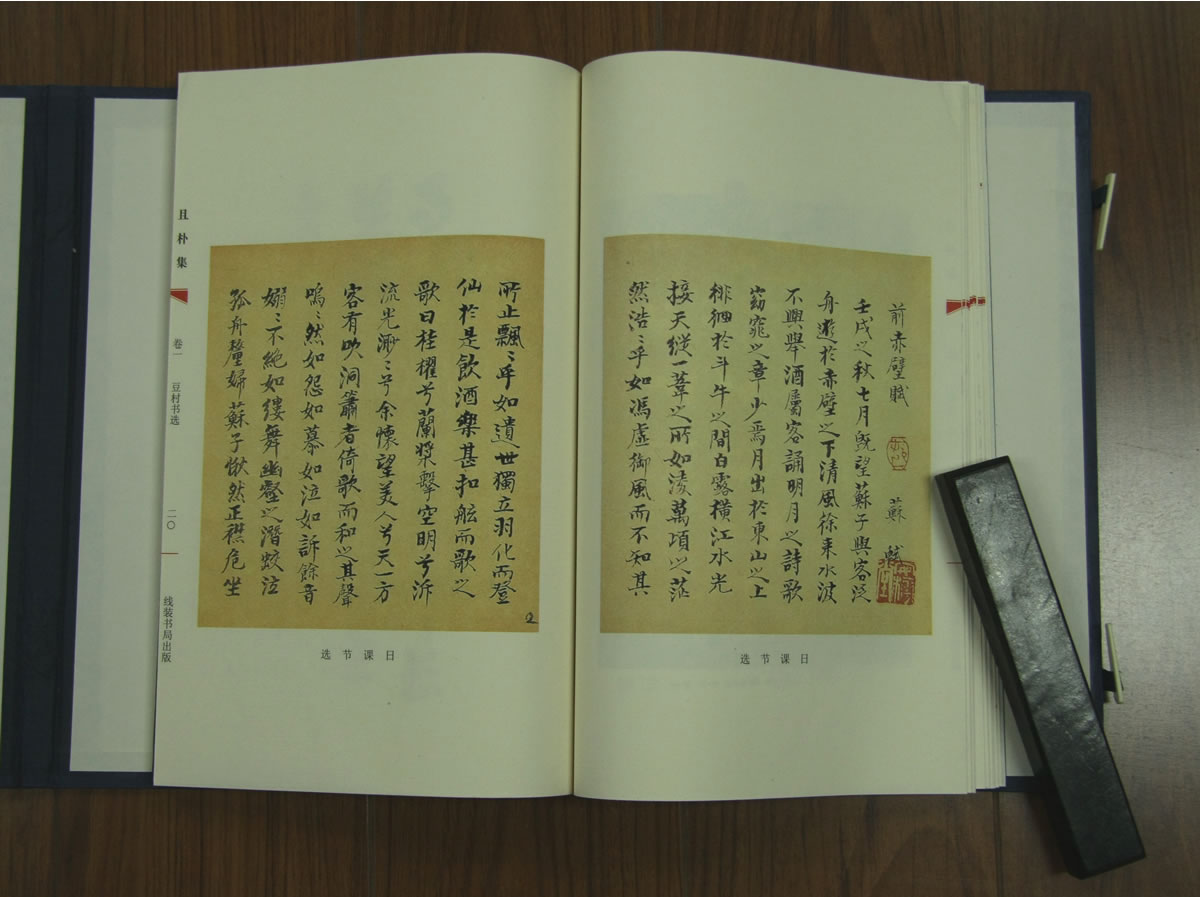 前赤壁賦 蘇軾
壬戌之秋七月既望蘇子與客泛
舟遊於赤壁之下清風徐来水波
不興舉酒屬客誦明月之詩歌
窈窕之章少焉月出於東山之上
徘徊於斗牛之間白露橫江水光
接天縱一葦之所如淩萬頃之茫
然浩〻乎如馮虛御風而不知其
日课节选
所止飄〻乎如遺世獨立羽化而登
仙於是飲酒樂甚扣舷而歌之
歌曰桂櫂兮蘭槳擊空明兮泝
流光渺〻兮余懷望美人兮天一方
客有吹洞簫者倚歌而和之其聲
嗚〻然如怨如慕如泣如訴餘音
嫋〻不絶如縷舞幽壑之潛蛟泣
孤舟嫠婦蘇子愀然正襟危坐
2
日课节选
且朴集
卷一 豆村书选
二〇
线装书局出版